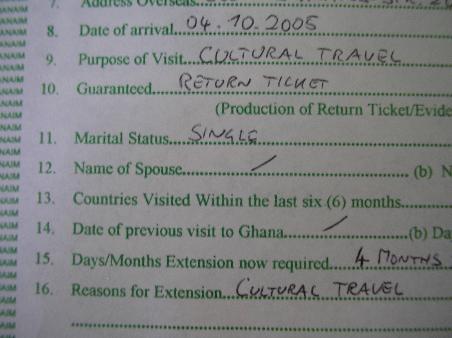 7. Address Overseas
8. Date of arrival...04.10.2005
9. Purpose of Visit...CULTURAL TRAVEL
10. Guaranteed...RETURN TICKET
(Production of Return Ticket/Evide
11. Marital Status...SINGLE
12. Name of Spouse.../...(b) N
13. Countries Visited Within the last six (6) months...
14. Date of previous visit to Ghana.../...(b) Da
15. Days/Months Extension now required...4 MONTHS
16. Reasons for Extension...CULTURAL TRAVEL